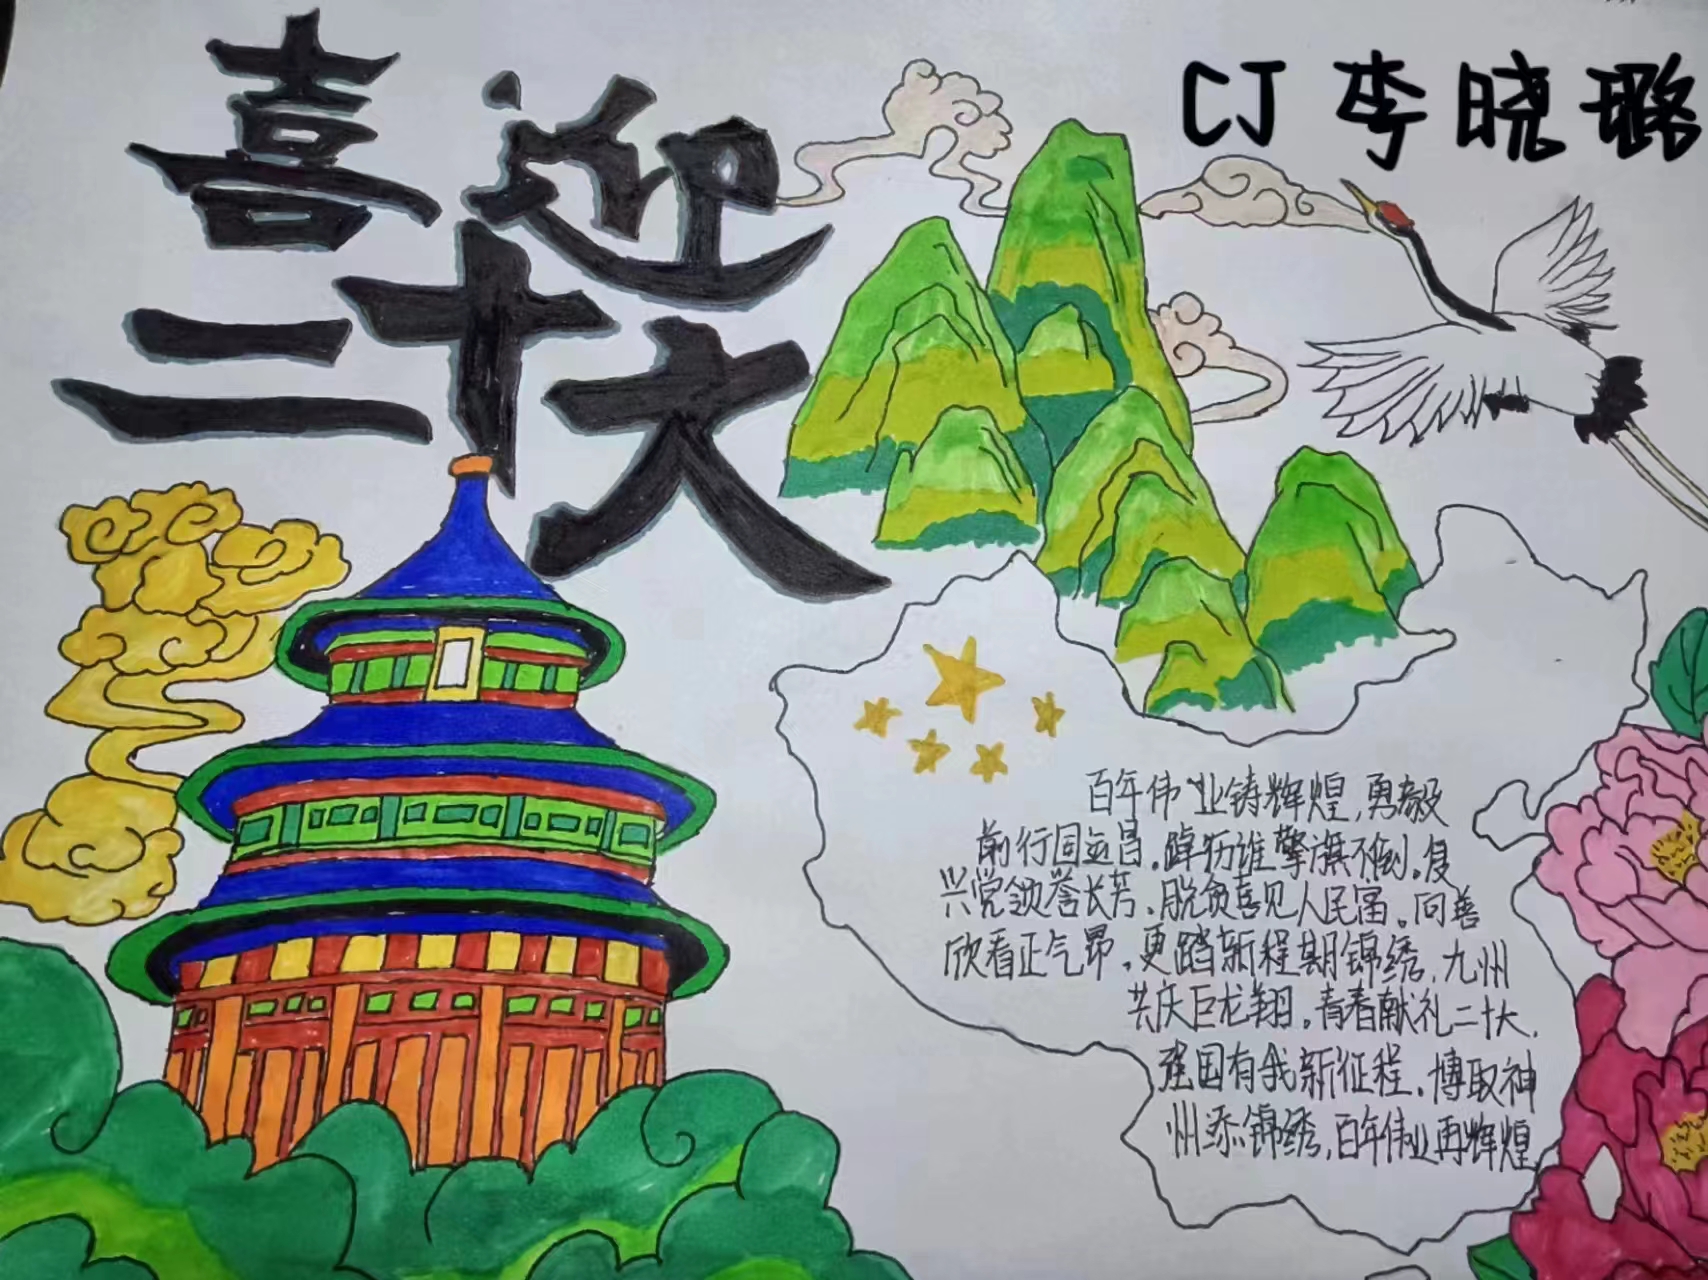 喜迎
二十大
CJ 李晓璐
百年伟业铸辉煌,勇毅
前行国运昌。踔厉谁擎旗不倒。复
兴党领誉长芳。脱贫喜见人民富。向善
欣看正气昂。更踏新程期锦绣,九州
共庆巨龙翔。青春献礼二十大,
强国有我新征程。博取神
州添锦绣,百年伟业再辉煌